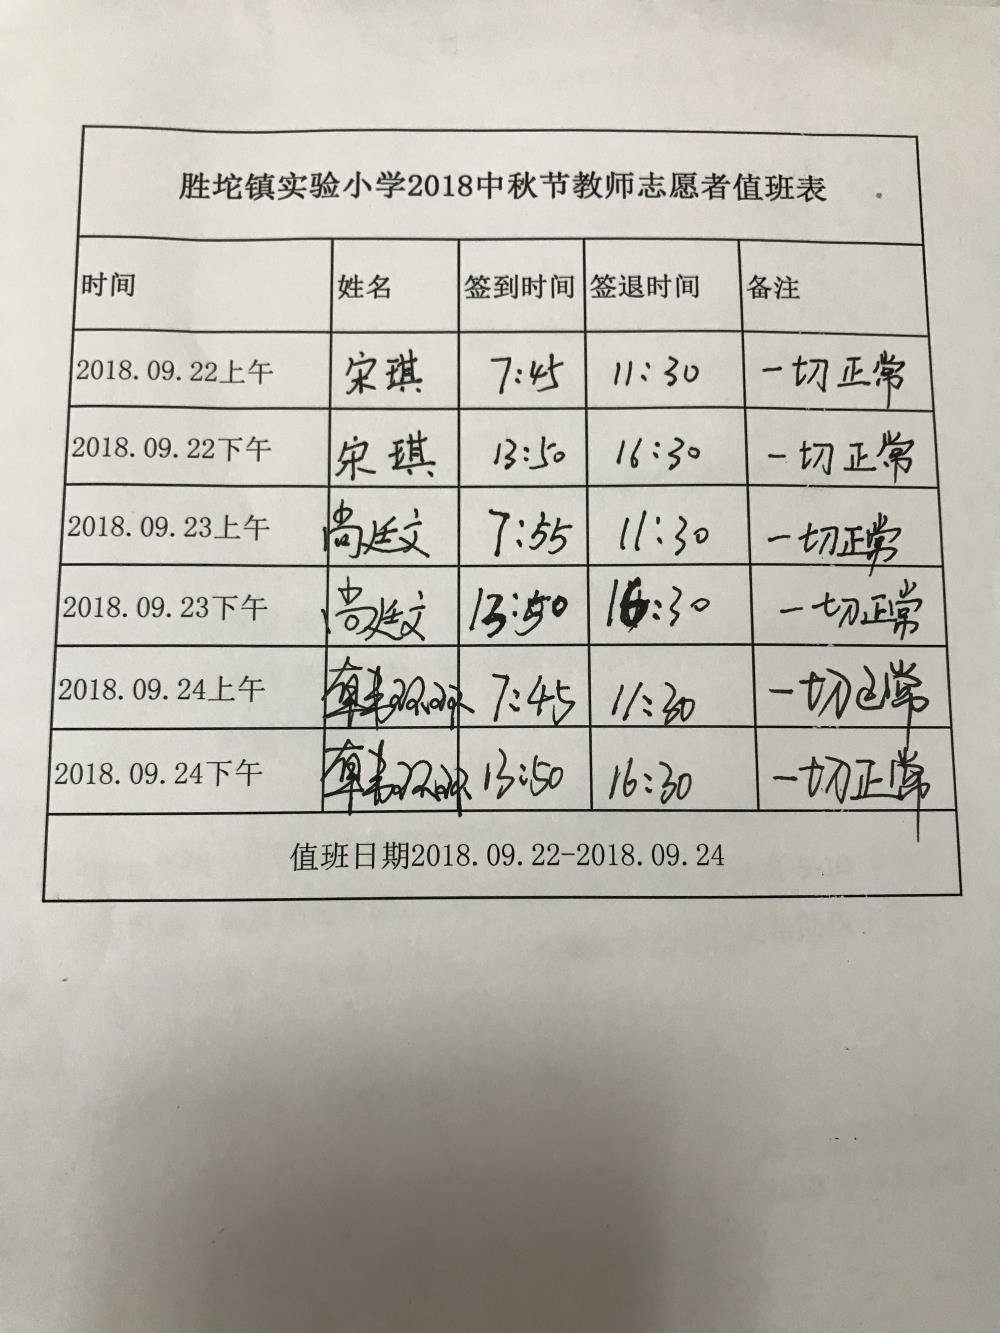 胜坨镇实验小学2018中秋节教师志愿者值班表
时间 姓名 签到时间 签退时间 备注
2018.09.22上午 宋琪 7:45 11:30 一切正常
2018.09.22下午 宋琪 13:50 16:30 一切正常
2018.09.23上午 尚廷文 7:55 11:30 一切正常
2018.09.23下午 尚廷文 13:50 16:30 一切正常
2018.09.24上午 7:45 11:30 一切正常
2018.09.24下午 13:50 16:30 一切正常
值班日期2018.09.22-2018.09.24